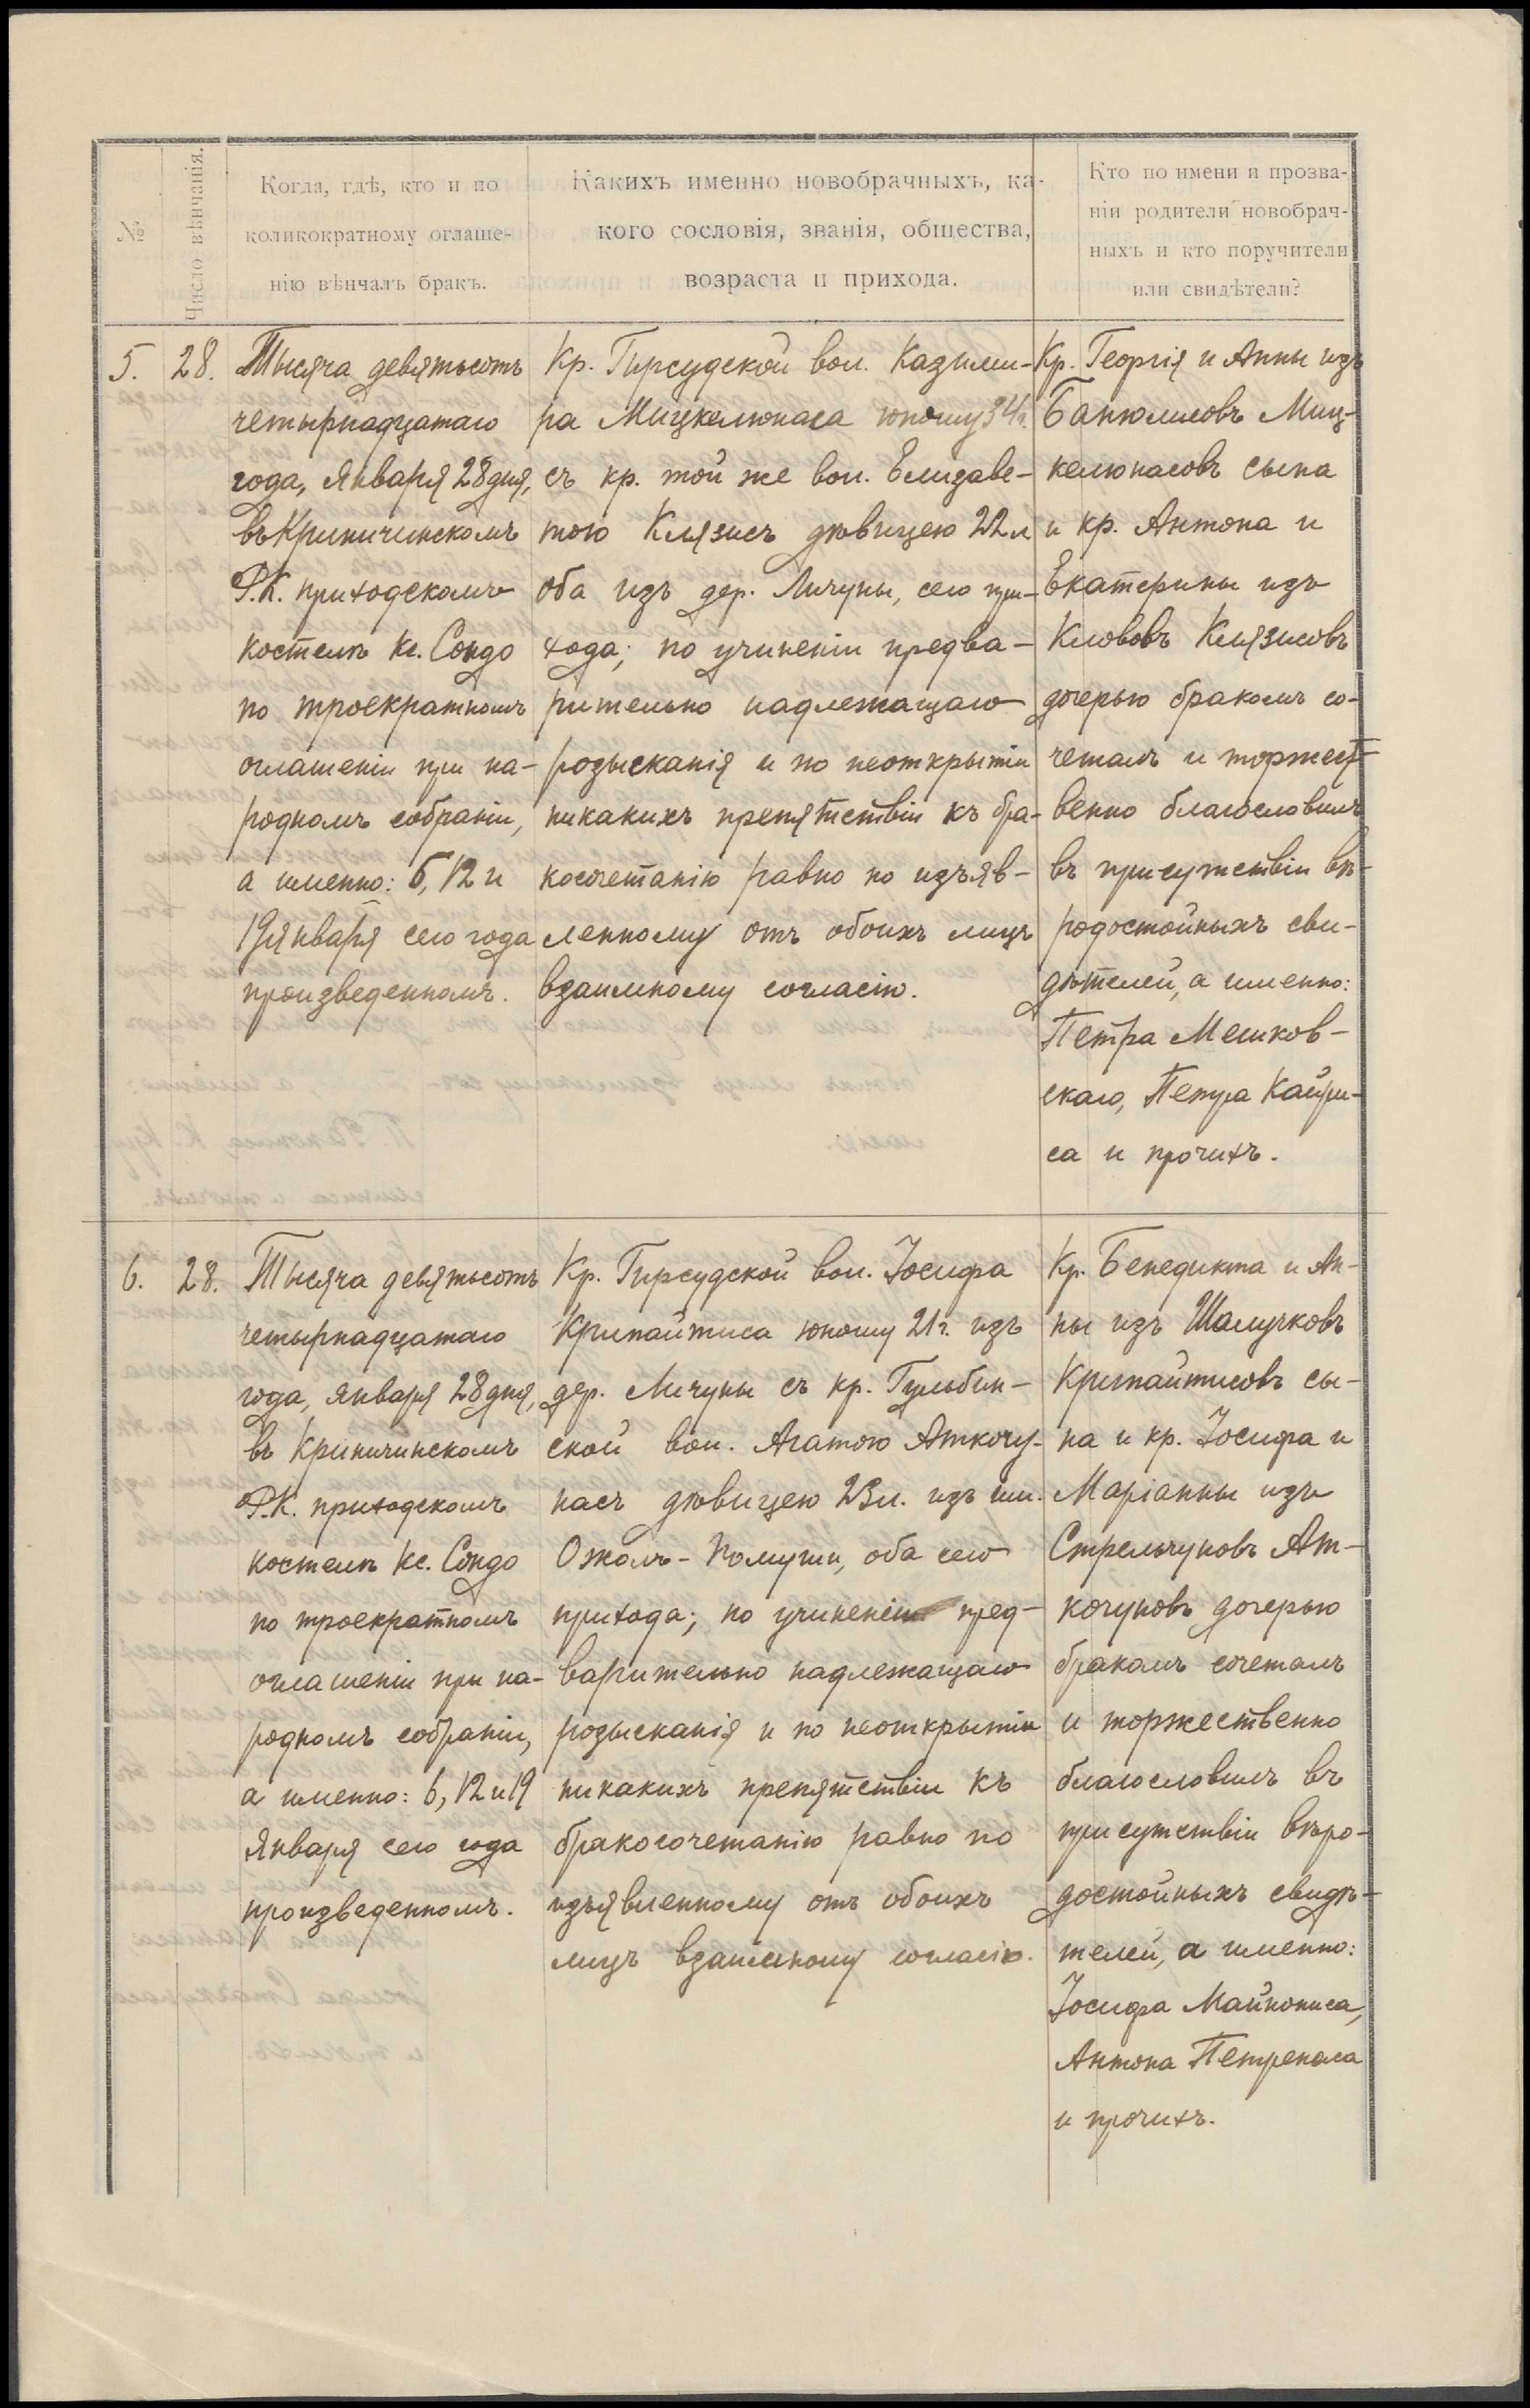 №
Число вѣнчанія.
Когда, гдѣ, кто и по
коликократному оглаше-
нію вѣнчалъ бракъ.
Какихъ именно новобрачныхъ, ка-
кого сословія, званія, общества,
возраста и прихода.
Кто по имени и прозва-
ніи родители новобрач-
ныхъ и кто поручители
или свидѣтели?
5.
28.
Тысяча девятьсотъ
четырнадцатаго
года, Января 28 дня,
въ Криничинскомъ
Р.К. приходскомъ
костелѣ Кс. Сондо
по троекратномъ
оглашеніи при на-
родномъ собраніи,
а именно: 6, 12 и
19 января сего года
произведенномъ.
Кр. Гирсудской вол. Казими-
ра Мицкелюнаса юношу 34 г.
съ кр. той же вол. Елизаве-
тою Клязисъ дѣвицею 22 л
оба изъ дер. Личуны, сего при-
хода; по учиненіи предва-
рительно надлежащаго
розысканія и по неоткрытіи
никакихъ препятствіи къ бра-
косочетанію равно по изъяв-
ленному отъ обоихъ лицъ
взаимному согласію.
Кр. Георгія и Анны изъ
Банюлисовъ Миц-
келюнасовъ сына
и кр. Антона и
Екатерины изъ
Клововъ Клязисовъ
дочерью бракомъ со-
четалъ и торжест-
венно благословилъ
въ присутствіи вѣ-
родостойныхъ сви-
дѣтелей, а именно:
Петра Мешков-
скаго, Петра Кайри-
са и прочихъ.
6.
28.
Тысяча девятьсотъ
четырнадцатаго
года, января 28 дня,
въ Криничинскомъ
Р.К. приходскомъ
костелѣ Кс. Сондо
по троекратномъ
оглашеніи при на-
родномъ собраніи,
а именно: 6, 12 и 19
Января сего года
произведенномъ.
Кр. Гирсудской вол. Іосифа
Крипайтиса юношу 21 г. изъ
дер. Личуны съ кр. Гульбин-
ской вол. Агатою Аткочу-
насъ дѣвицею 23 л. изъ им.
Ожолъ-Помуши, оба сего
прихода; по учиненіи пред-
варительно надлежащаго
розысканія и по неоткрытіи
никакихъ препятствіи къ
бракосочетанію равно по
изъявленному отъ обоихъ
лицъ взаимному согласію.
Кр. Бенедикта и Ан-
ны изъ Шалучковъ
Крипайтисовъ сы-
на и кр. Іосифа и
Маріанны изъ
Стрельчуновъ Ат-
кочуновъ дочерью
бракомъ сочеталъ
и торжественно
благословилъ въ
присутствіи вѣро-
достойныхъ свидѣ-
телей, а именно:
Іосифа Майкониса,
Антона Петренаса
и прочихъ.